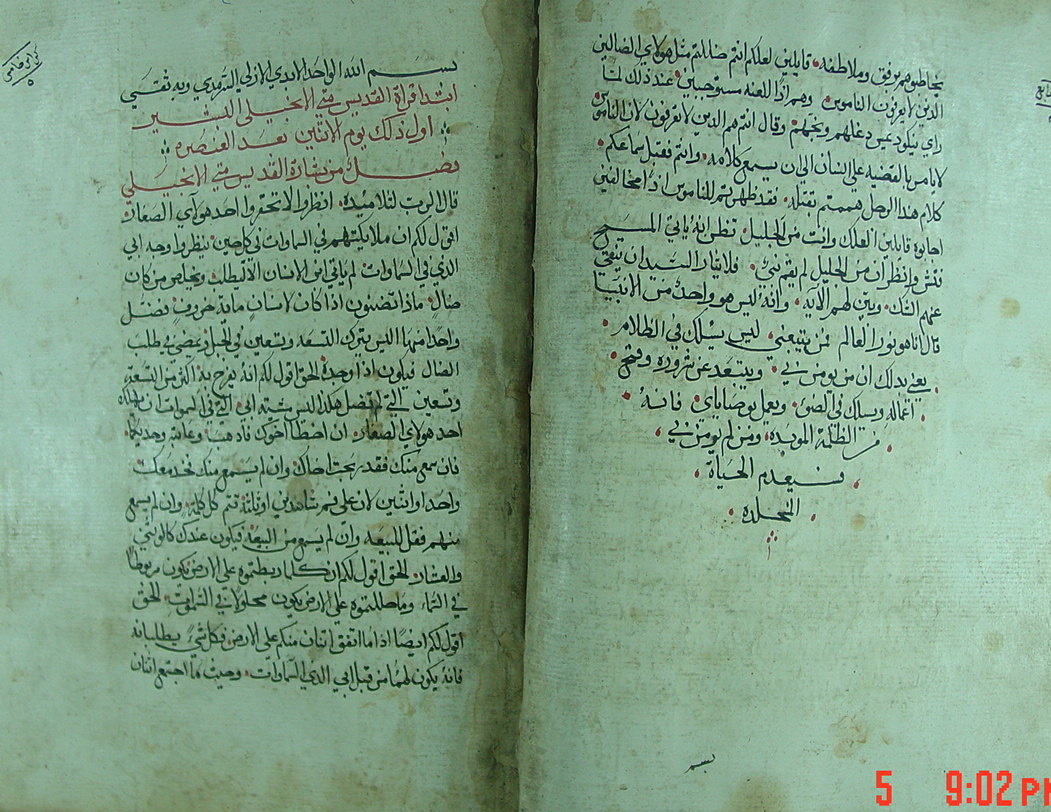 يخاطبوهم برفق وملاطفه. قايلين لعلكم انتم ضللتم مثل هولاي الضالين
الذين لا يعرفون الناموس وهم اذا للعنه مستوجبين عند ذلك لما
راي نيقوديموس دغلهم وبخهم وقال انتم هم الذين لا تعرفون لان الناموس
لا يامر بالقضيه علي انسان الي ان يسمع كلامه. وانتم فقبل سماعكم
كلام هذا الرجل هممتم بقتله. فقد ظهرتم للناموس اذا مخالفين
اجابوه قايلين لعلك وانت من الجليل. تظن انه ياتي المسيح
فتش وانظر ان من الجليل لم يقم نبي. فلا يثار السيد ان ينفي
عنهم الشك. ويبين لهم الايه. وانه ليس هو واحد من الانبيا
قال انا هو نور العالم فمن يتبعني ليس يسلك في الظلام
يعني بذلك ان من يومن بي. ويبتعد عن شروره وقبح
اعماله ويسلك في الضو. ويعمل بوصاياي. فانه
من الظلمة الموبده. ومن لم يومن بي
سيعدم الحياة
المخلده
بسم
بسم الله الواحد الابدي الازلي السرمدي وبه ثقتي
ابتدا قراة القديس متي الانجيلي البشير
اول ذلك يوم الاثنين بعد العنصره
فصل من بشارة القديس متي الانجيلي
قال الرب لتلاميذه. انظروا لا تحقروا احد هولاي الصغار
اقول لكم ان ملايكتهم في السماوات في كل حين. ينظروا وجه ابي
الذي في السماوات لم ياتي ابن الانسان الا ليطلب ويخلص من كان
ضال. ماذا تضنون اذا كان لانسان ماية خروف. فضل
واحدا منها اليس يترك التسعه وتسعين في الجبل ويمضي في طلب
الضال فيكون اذا وجده الحق اقول لكم انه يفرح به اكثر من التسعه
وتسعين التي لم تضل هكذا ليس مشية ابي الذي في السموات ان يهلك
احد هولاي الصغار. ان اخطا اخوك فاذهب وعاتبه وحديكما
فان سمع منك فقد ربحت اخاك وان لم يسمع منك فخذ معك
واحد او اثنين لان علي فم شاهدين او ثلثة تتم كل كلمة. وان لم يسمع
منهم فقل للبيعه وان لم يسمع من البيعه فيكون عندك كالوثني
والعشار. الحق اقول لكم ان كلما ربطتموه علي الارض يكون مربوطا
في السما. وما حللتموه علي الارض يكون محلولا في السموات. الحق
اقول لكم ايضا اذا ما اتفق اثنان منكم علي الارض فكل شي يطلبانه
فانه يكون لهما من قبل ابي الذي في السماوات. وحيث ما اجتمع اثنان
5 9:02 PM